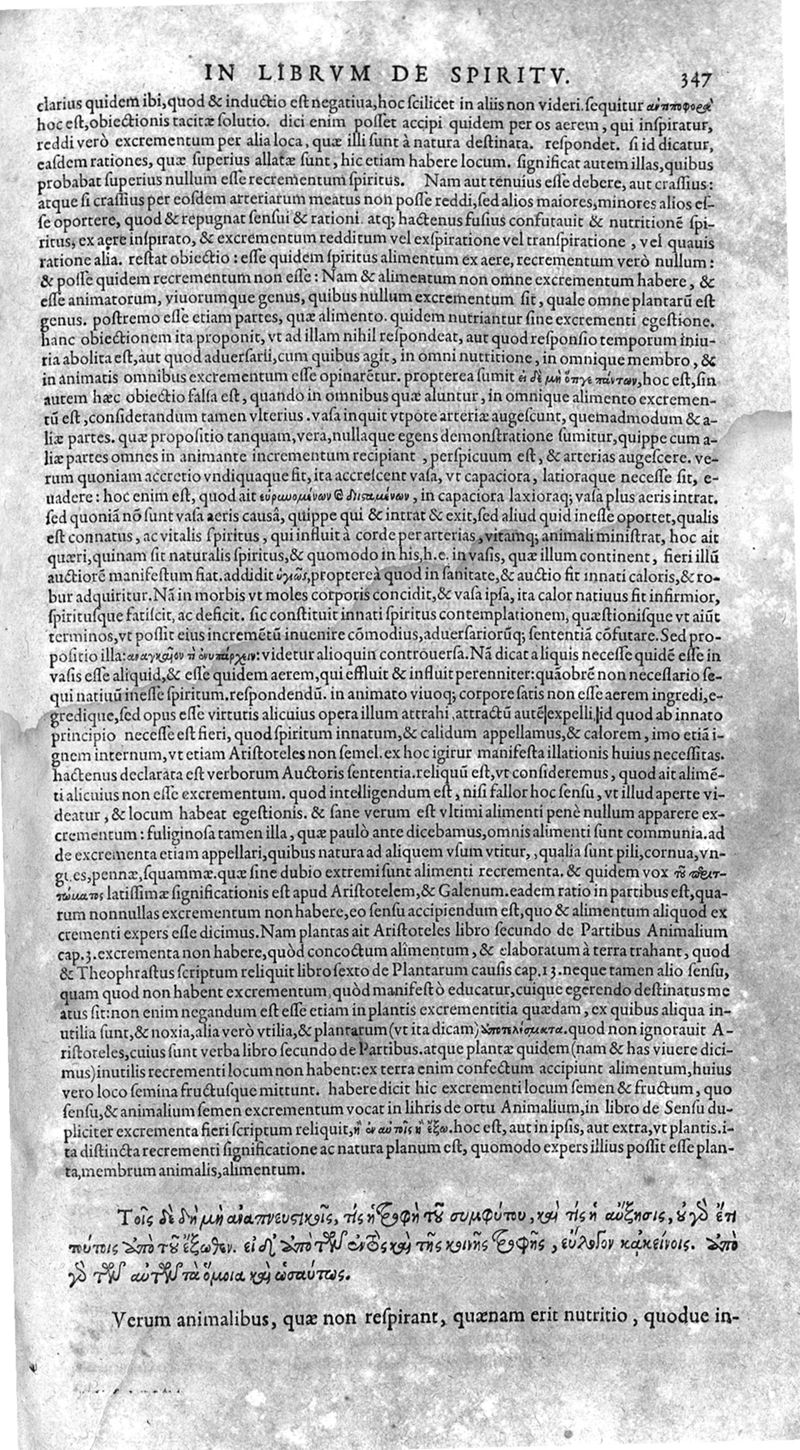 IN LIBRVM DE SPIRITV. 347
clarius quidem ibi, quod & inductio est negatiua, hoc scilicet in aliis non videri. sequitur ἀνθυποφορὰ
hoc est, obiectionis tacitæ solutio. dici enim posset accipi quidem per os aerem, qui inspiratur,
reddi verò excrementum per alia loca, quæ illi sunt à natura destinata. respondet. si id dicatur,
easdem rationes, quæ superius allatæ sunt, hic etiam habere locum. significat autem illas, quibus
probabat superius nullum esse recrementum spiritus. Nam aut tenuius esse debere, aut crassius:
atque si crassius per eosdem arteriarum meatus non posse reddi, sed alios maiores, minores alios es-
se oportere, quod & repugnat sensui & rationi. atq; hactenus fusius confutauit & nutritionẽ spi-
ritus, ex aere inspirato, & excrementum redditum vel exspiratione vel transpiratione, vel quauis
ratione alia. restat obiectio: esse quidem spiritus alimentum ex aere, recrementum verò nullum:
& posse quidem recrementum non esse: Nam & alimentum non omne excrementum habere, &
esse animatorum, viuorumque genus, quibus nullum excrementum sit, quale omne plantarũ est
genus. postremo esse etiam partes, quæ alimento. quidem nutriantur sine excrementi egestione.
hanc obiectionem ita proponit, vt ad illam nihil respondeat, aut quod responsio temporum iniu-
ria abolita est, aut quod aduersarii, cum quibus agit, in omni nutritione, in omnique membro, &
in animatis omnibus excrementum esse opinarẽtur. propterea sumit εἰ δὲ μὴ ὅτι γε πάντων, hoc est, sin
autem hæc obiectio falsa est, quando in omnibus quæ aluntur, in omnique alimento excremen-
tũ est, considerandum tamen vlterius. vasa inquit vtpote arteriæ augescunt, quemadmodum & a-
liæ partes. quæ propositio tanquam, vera, nullaque egens demonstratione sumitur, quippe cum a-
liæ partes omnes in animante incrementum recipiant, perspicuum est, & arterias augescere. ve-
rum quoniam accretio vndiquaque fit, ita accrescent vasa, vt capaciora, latioraque necesse sit, e-
uadere: hoc enim est, quod ait εὐρωνομένων & διισταμένων, in capaciora laxioraq; vasa plus aeris intrat.
sed quoniã nõ sunt vasa aeris causâ, quippe qui & intrat & exit, sed aliud quid inesse oportet, qualis
est connatus, ac vitalis spiritus, qui influit à corde per arterias, vitamq; animali ministrat, hoc ait
quæri, quinam sit naturalis spiritus, & quomodo in his, h.e. in vasis, quæ illum continent, fieri illũ
auctiorẽ manifestum fiat. addidit ὑγιῶς, propterea quod in sanitate, & auctio fit innati caloris, & ro-
bur adquiritur. Nã in morbis vt moles corporis concidit, & vasa ipsa, ita calor natiuus fit infirmior,
spiritusque fatiscit, ac deficit. sic constituit innati spiritus contemplationem, quæstionisque vt aiũt
terminos, vt possit eius incremẽtũ inuenire cõmodius, aduersariorũq; sententiã cõfutare. Sed pro-
positio illa: ἀναγκαῖον τὶ ἐνυπάρχειν: videtur alioquin controuersa. Nã dicat aliquis necesse quidẽ esse in
vasis esse aliquid, & esse quidem aerem, qui effluit & influit perenniter: quãobrẽ non necessario se-
qui natiuũ inesse spiritum. respondendũ. in animato viuoq; corpore satis non esse aerem ingredi, e-
gredique, sed opus esse virtutis alicuius opera illum attrahi, attractũ autẽ expelli, id quod ab innato
principio necesse est fieri, quod spiritum innatum, & calidum appellamus, & calorem, imo etiã i-
gnem internum, vt etiam Aristoteles non semel. ex hoc igitur manifesta illationis huius necessitas.
hactenus declarata est verborum Auctoris sententia. reliquũ est, vt consideremus, quod ait alimẽ-
ti alicuius non esse excrementum. quod intelligendum est, nisi fallor hoc sensu, vt illud aperte vi-
deatur, & locum habeat egestionis. & sane verum est vltimi alimenti penè nullum apparere ex-
crementum: fuliginosa tamen illa, quæ paulò ante dicebamus, omnis alimenti sunt communia. ad
de excrementa etiam appellari, quibus natura ad aliquem vsum vtitur, , qualia sunt pili, cornua, vn-
gues, pennæ, squammæ. quæ sine dubio extremi sunt alimenti recrementa. & quidem vox τοῦ περιτ-
τώματος latissimæ significationis est apud Aristotelem, & Galenum. eadem ratio in partibus est, qua-
rum nonnullas excrementum non habere, eo sensu accipiendum est, quo & alimentum aliquod ex
crementi expers esse dicimus. Nam plantas ait Aristoteles libro secundo de Partibus Animalium
cap. 3. excrementa non habere, quòd concoctum alimentum, & elaboratum à terra trahant, quod
& Theophrastus scriptum reliquit libro sexto de Plantarum causis cap. 13. neque tamen alio sensu,
quam quod non habent excrementum, quòd manifestò educatur, cuique egerendo destinatus me
atus sit: non enim negandum est esse etiam in plantis excrementitia quædam, ex quibus aliqua in-
utilia sunt, & noxia, alia verò vtilia, & plantarum (vt ita dicam) ἀποτελέσματα. quod non ignorauit A-
ristoteles, cuius sunt verba libro secundo de Partibus. atque plantæ quidem (nam & has viuere dici-
mus) inutilis recrementi locum non habent: ex terra enim confectum accipiunt alimentum, huius
vero loco semina fructusque mittunt. habere dicit hic excrementi locum semen & fructum, quo
sensu, & animalium semen excrementum vocat in libris de ortu Animalium, in libro de Sensu du-
pliciter excrementa fieri scriptum reliquit, ἢ ἐν αὐτοῖς ἢ ἔξω. hoc est, aut in ipsis, aut extra, vt plantis. i-
ta distincta recrementi significatione ac natura planum est, quomodo expers illius possit esse plan-
ta, membrum animalis, alimentum.
Τοῖς δὲ δὴ μὴ ἀναπνευστικοῖς, τίς ἡ τροφὴ τοῦ συμφύτου, καὶ τίς ἡ αὔξησις, οὐ γὰρ ἔτι
τούτοις ἀπὸ τοῦ ἔξωθεν. εἰ δ' ἀπὸ τῶν ἐντὸς καὶ τῆς κοινῆς τροφῆς, εὔλογον κἀκείνοις. ἀπὸ
γὰρ τῶν αὐτῶν τὰ ὅμοια καὶ ὡσαύτως.
Verum animalibus, quæ non respirant, quænam erit nutritio, quodue in-